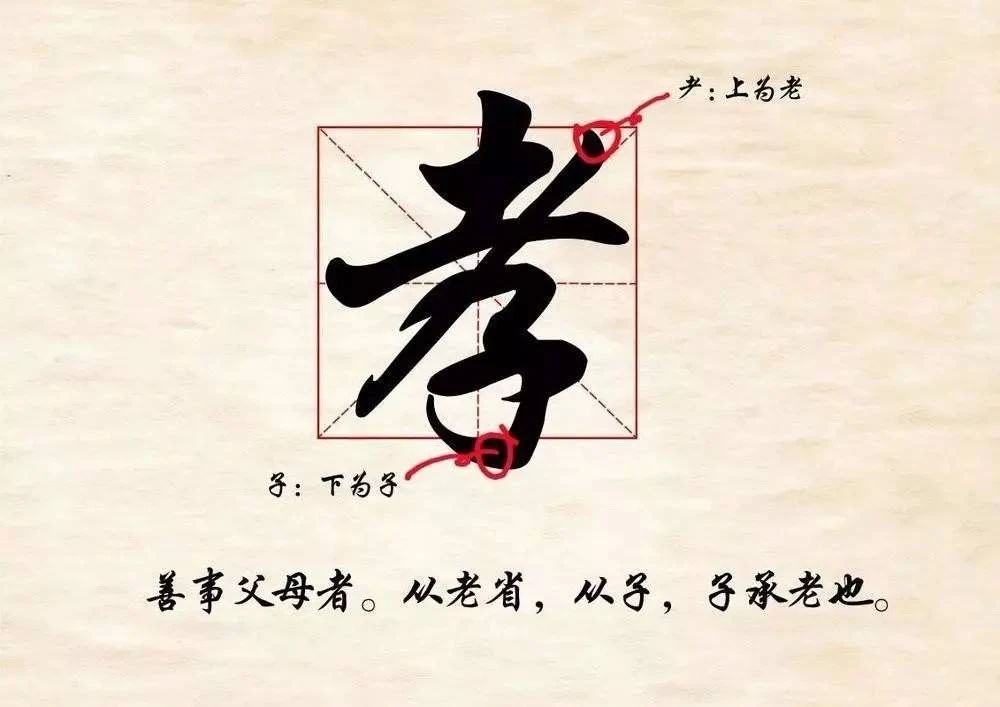 耂：上为老
孝
子：下为子
善事父母者。从老省，从子，子承老也。